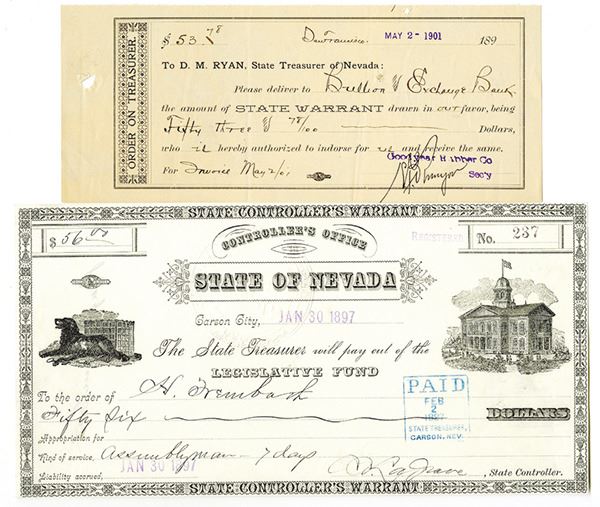 ORDER ON TREASURER.
$ 53.78
San Francisco, MAY 2 - 1901 189
To D. M. RYAN, State Treasurer of Nevada:
Please deliver to Bullion & Exchange Bank
the amount of STATE WARRANT drawn in our favor, being
Fifty three & 78/100 Dollars,
who is hereby authorized to indorse for us and receive the same.
Goodyear Rubber Co
For Invoice May 2/01
Secy
STATE CONTROLLER'S WARRANT
$ 56.00
CONTROLLER'S OFFICE
REGISTERED
No. 237
STATE OF NEVADA
Carson City, JAN 30 1897
The State Treasurer will pay out of the
LEGISLATIVE FUND
To the order of H. Trembath
Fifty Six DOLLARS
PAID
FEB
2
1897
STATE TREASURER,
CARSON, NEV.
Appropriation for
Kind of service, Assemblyman - 7 days
Liability accrued, JAN 30 1897
, State Controller.
STATE CONTROLLER'S WARRANT